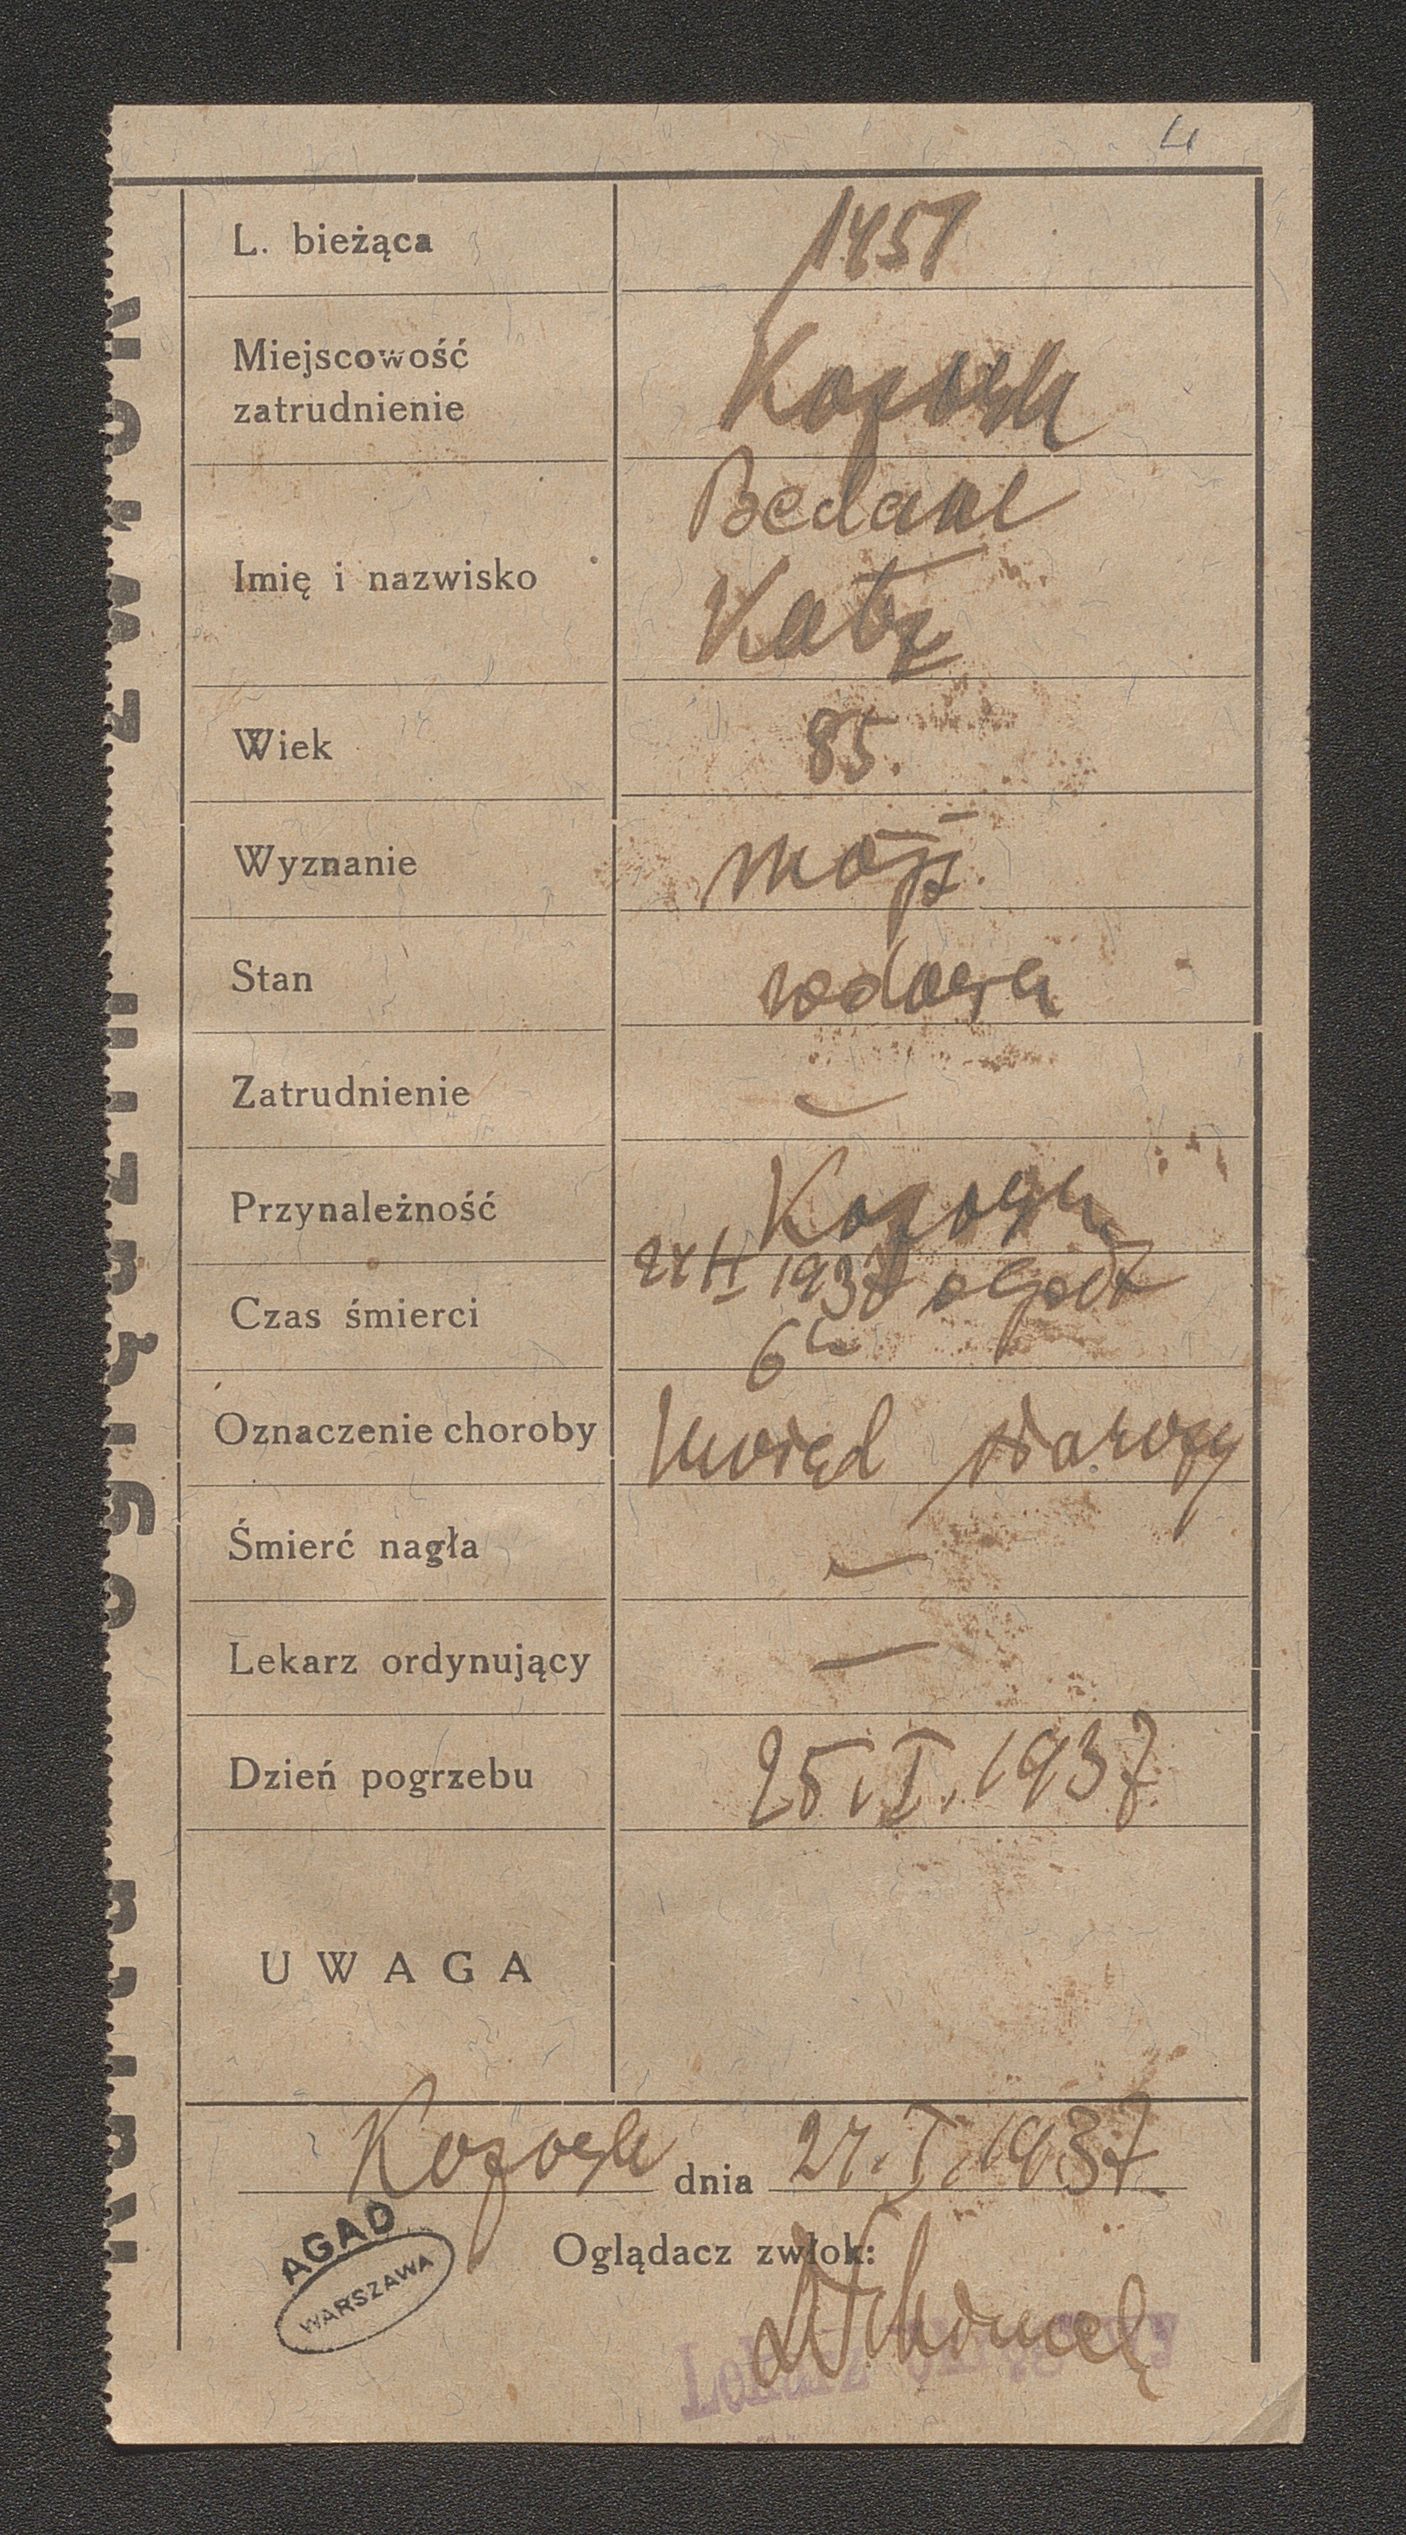 4
L. bieżąca 1451
Miejscowość
zatrudnienie Kozowa
Imię i nazwisko
Katz
Wiek 85.
Wyznanie mojż.
Stan wdowa
Zatrudnienie —
Przynależność Kozowa
1937
Czas śmierci
6
Oznaczenie choroby Uwiąd starczy
Śmierć nagła —
Lekarz ordynujący —
Dzień pogrzebu 25.I.1937
UWAGA
Kozowa dnia 24.I.1937
AGAD
WARSZAWA
Oglądacz zwłok:
Lekarz okręgowy